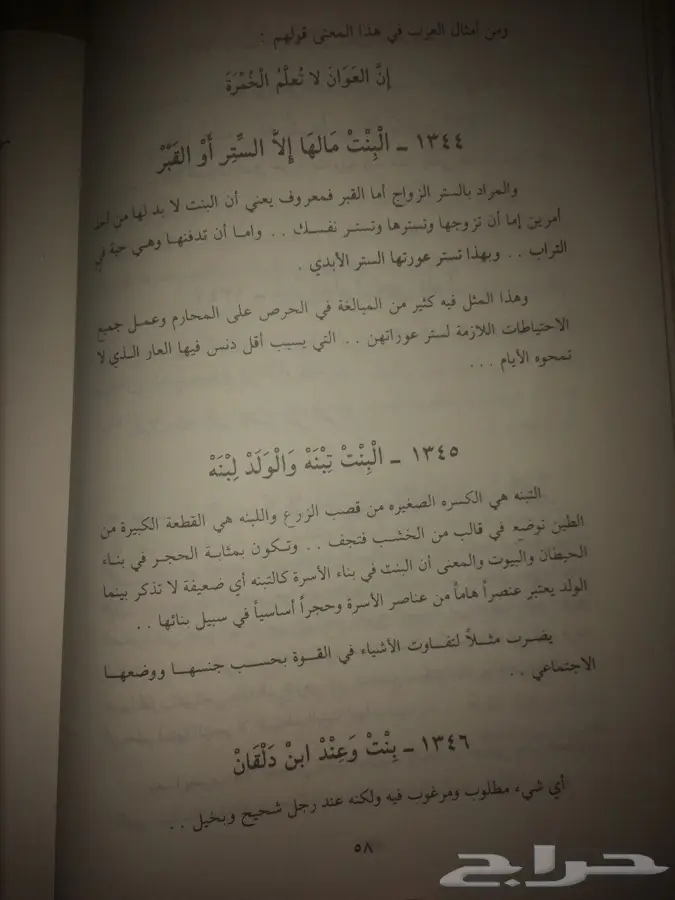 ومن أمثال العرب في هذا المعنى قولهم :
إِنَّ العَوَانَ لا تُعلَّمُ الْخُمْرَةَ
١٣٤٤ ـ الْبِنْتْ مَالهَا إلاَّ السِّتِر أَوْ القَبْرْ
والمراد بالستر الزواج أما القبر فمعروف يعني أن البنت لا بد لها من أحد
أمرين إما أن تزوجها وتسترها وتستر نفسك . . واما أن تدفنها وهي حية في
التراب . . وبهذا تستر عورتها الستر الأبدي .
وهذا المثل فيه كثير من المبالغة في الحرص على المحارم وعمل جميع
الاحتياطات اللازمة لستر عوراتهن . . التي يسبب أقل دنس فيها العار الذي لا
تمحوه الأيام . . .
١٣٤٥ ـ الْبِنْتْ تِبْنَهْ وَالْوَلَدْ لِبْنَهْ
التبنه هي الكسره الصغيره من قصب الزرع واللبنه هي القطعة الكبيرة من
الطين توضع في قالب من الخشب فتجف . . وتكون بمثابة الحجر في بناء
الحيطان والبيوت والمعنى أن البنت في بناء الأسرة كالتبنه أي ضعيفة لا تذكر بينما
الولد يعتبر عنصراً هاماً من عناصر الأسرة وحجراً أساسياً في سبيل بنائها . .
يضرب مثلاً لتفاوت الأشياء في القوة بحسب جنسها ووضعها
الاجتماعي . .
١٣٤٦ ـ بِنْتْ وَعِنْدْ ابنْ دَلْقَانْ
أي شيء مطلوب ومرغوب فيه ولكنه عند رجل شحيح وبخيل . .
٥٨
حراج